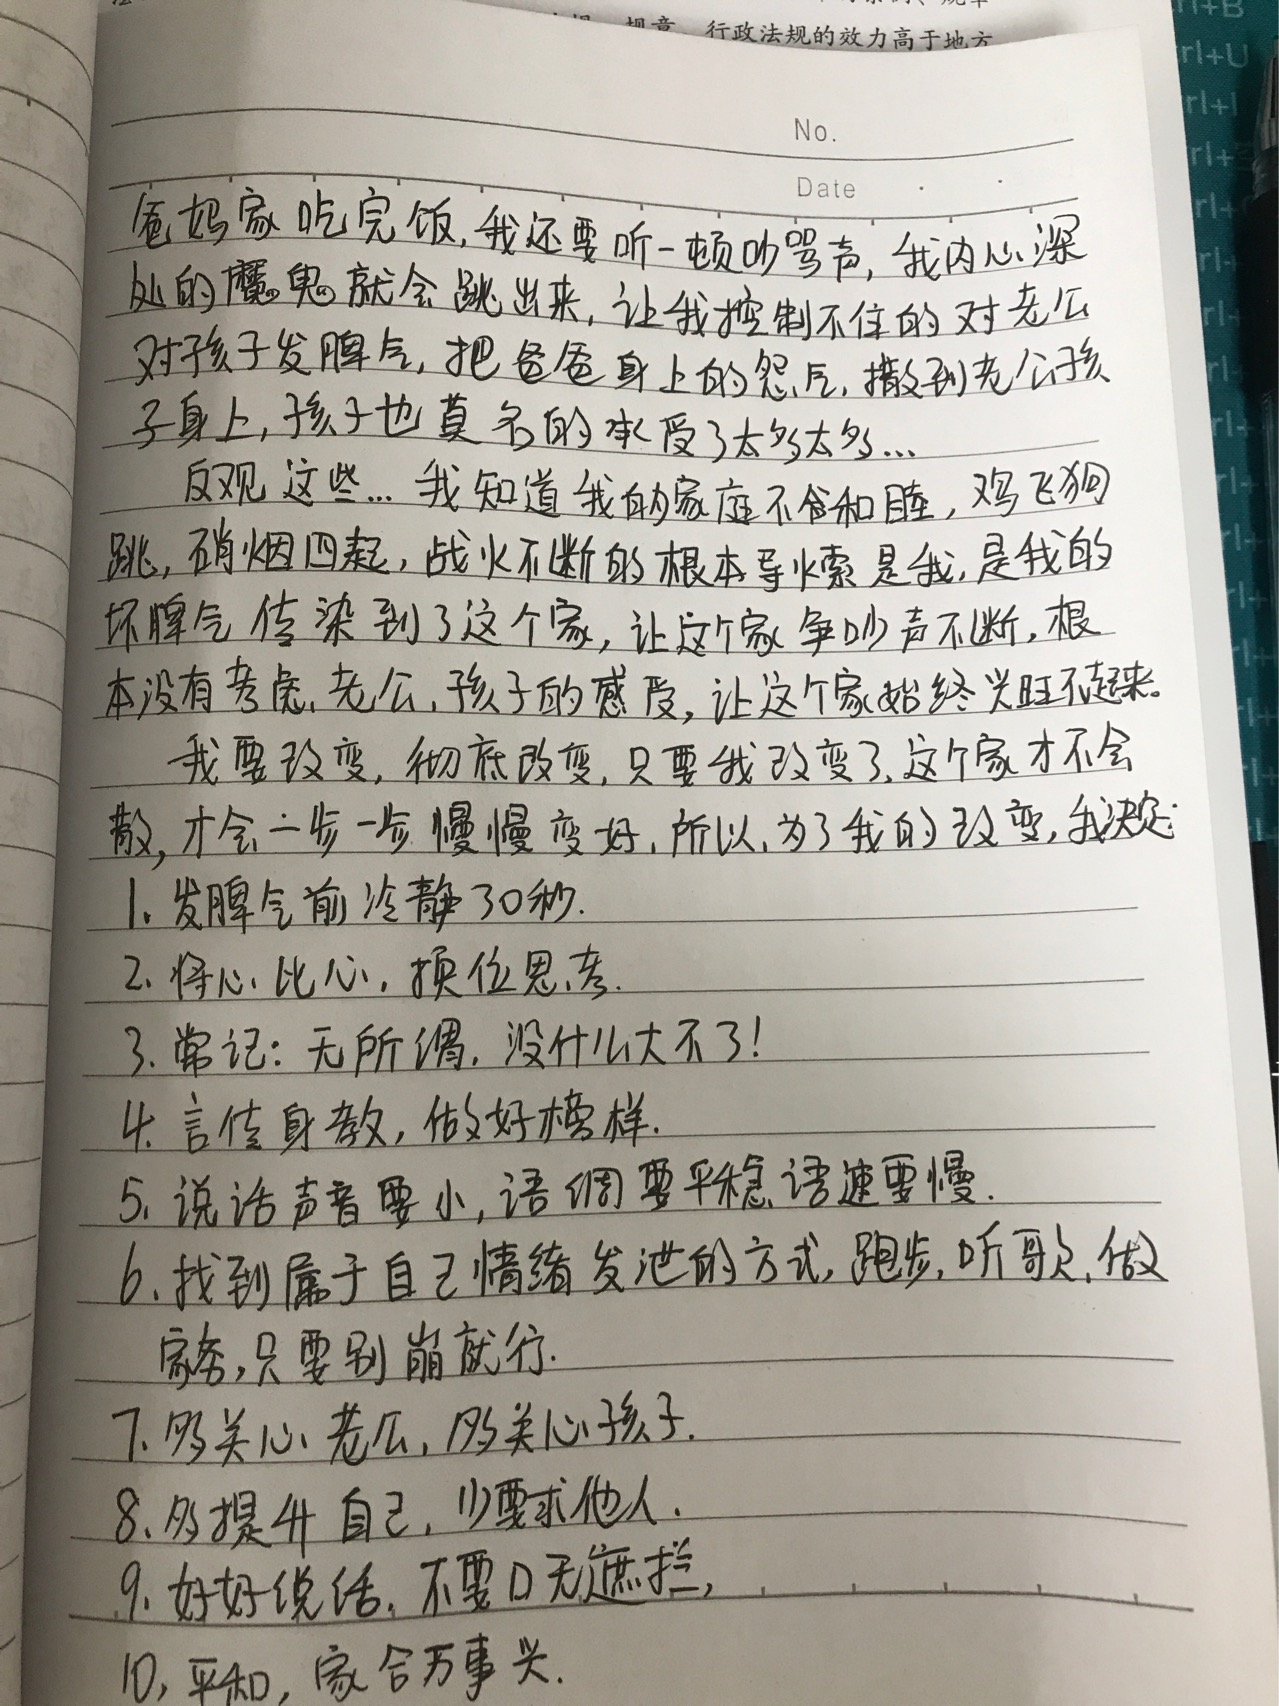 行政法规的效力高于地方
No.
Date
爸妈家吃完饭,我还要听一顿吵骂声,我内心深
处的魔鬼就会跳出来,让我控制不住的对老公
对孩子发脾气,把爸爸身上的怨气,撒到老公孩
子身上,孩子也莫名的承受了太多太多...
反观这些...我知道我的家庭不够和睦,鸡飞狗
跳,硝烟四起,战火不断的根本导火索是我,是我的
坏脾气传染到了这个家,让这个家争吵声不断,根
本没有考虑老公,孩子的感受,让这个家始终兴旺不起来。
我要改变,彻底改变,只要我改变了,这个家才不会
散,才会一步一步慢慢变好,所以,为了我的改变,我决定:
1.发脾气前冷静30秒.
2.将心比心,换位思考.
3.常记:无所谓,没什么大不了!
4.言传身教,做好榜样.
5.说话声音要小,语调要平稳语速要慢.
6.找到属于自己情绪发泄的方式,跑步,听歌,做
家务,只要别崩就行.
7.多关心老公,多关心孩子.
8.多提升自己,少要求他人.
9.好好说话,不要口无遮拦,
10,平和,家合万事兴.